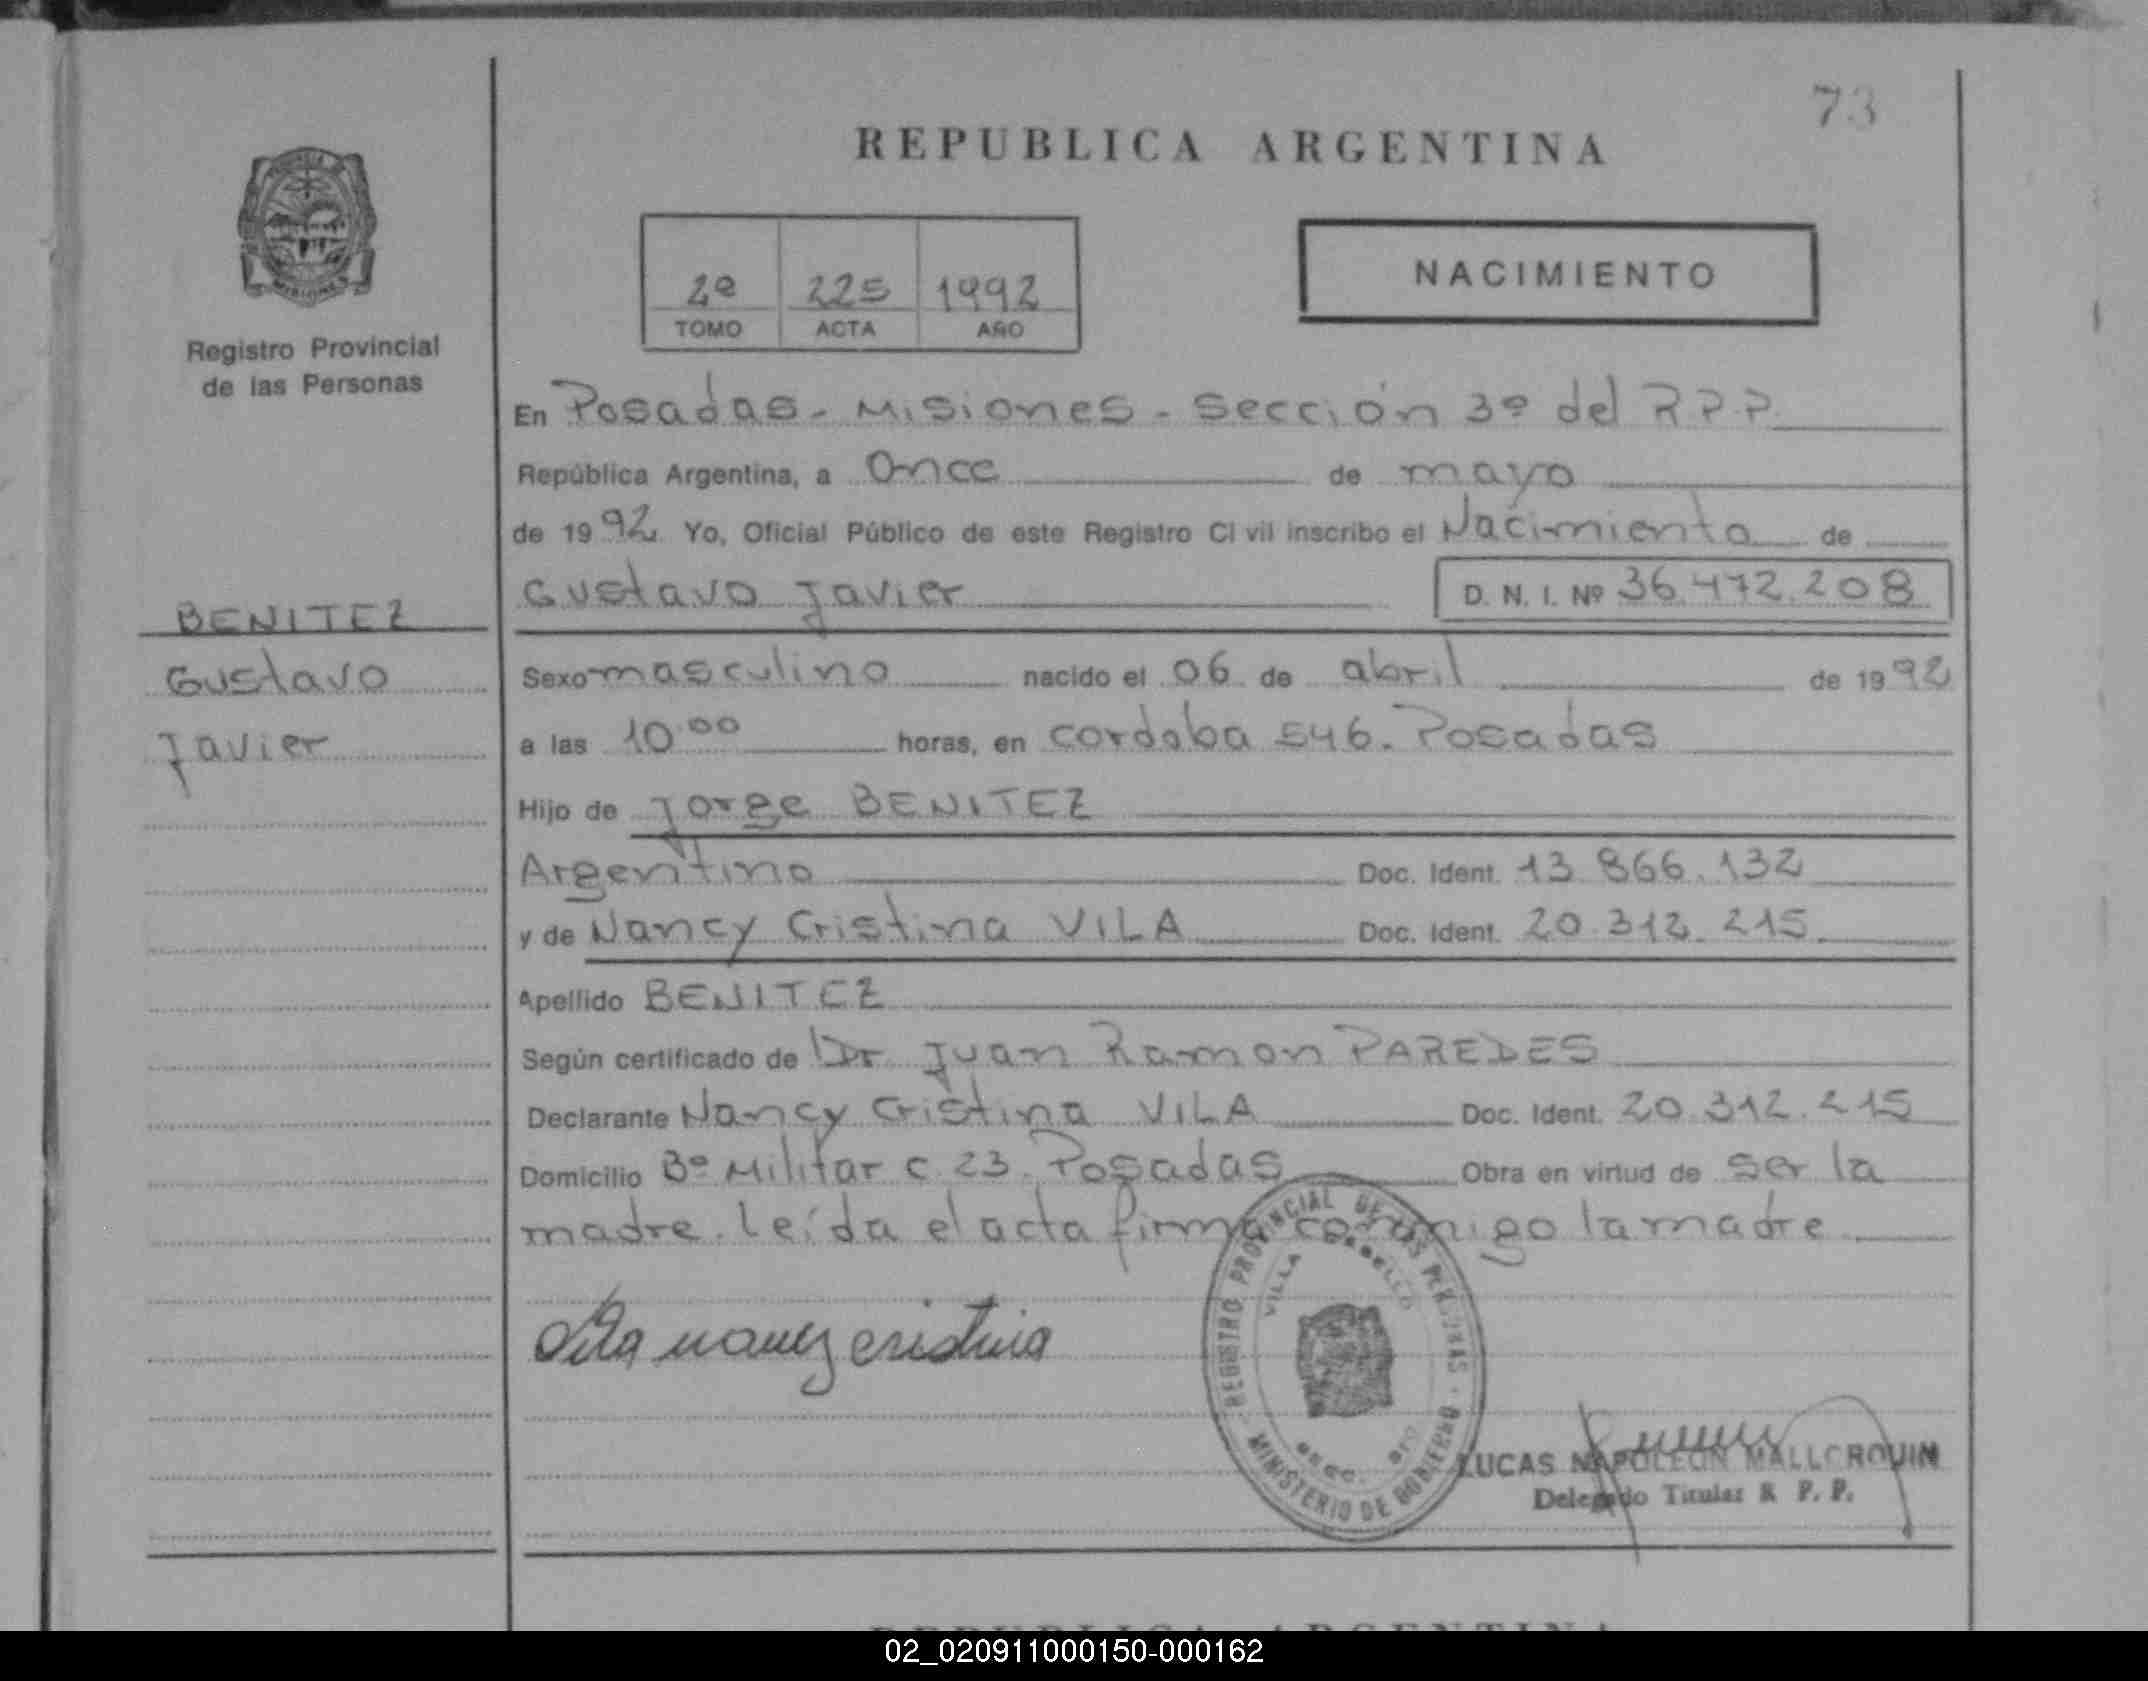 73
REPUBLICA ARGENTINA
2º 225 1992
TOMO ACTA AÑO
NACIMIENTO
Registro Provincial
de las Personas
En Posadas - Misiones - Sección 3º del R.P.P.
República Argentina, a Once de mayo
de 1992 Yo, Oficial Público de este Registro Civil inscribo el Nacimiento de
Gustavo Javier D. N. I. Nº 36.472.208
BENITEZ
Gustavo
Javier
Sexo masculino nacido el 06 de abril de 1992
a las 10.00 horas, en cordoba 546. Posadas
Hijo de Jorge BENITEZ
Argentino Doc. Ident. 13.866.132
y de Nancy Cristina VILA Doc. Ident. 20.312.215
Apellido BENITEZ
Según certificado de Dr. Juan Ramon PAREDES
Declarante Nancy Cristina VILA Doc. Ident. 20.312.215
Domicilio Bº Militar c. 23. Posadas Obra en virtud de ser la
madre. leída el acta firma conmigo la madre
Vila nancy cristina
REGISTRO PROVINCIAL DE LAS PERSONAS
VILLA
MINISTERIO DE GOBIERNO
LUCAS NAPOLEON MALLORQUIN
Delegado Titular R. P. P.
REPUBLICA ARGENTINA
02_020911000150-000162